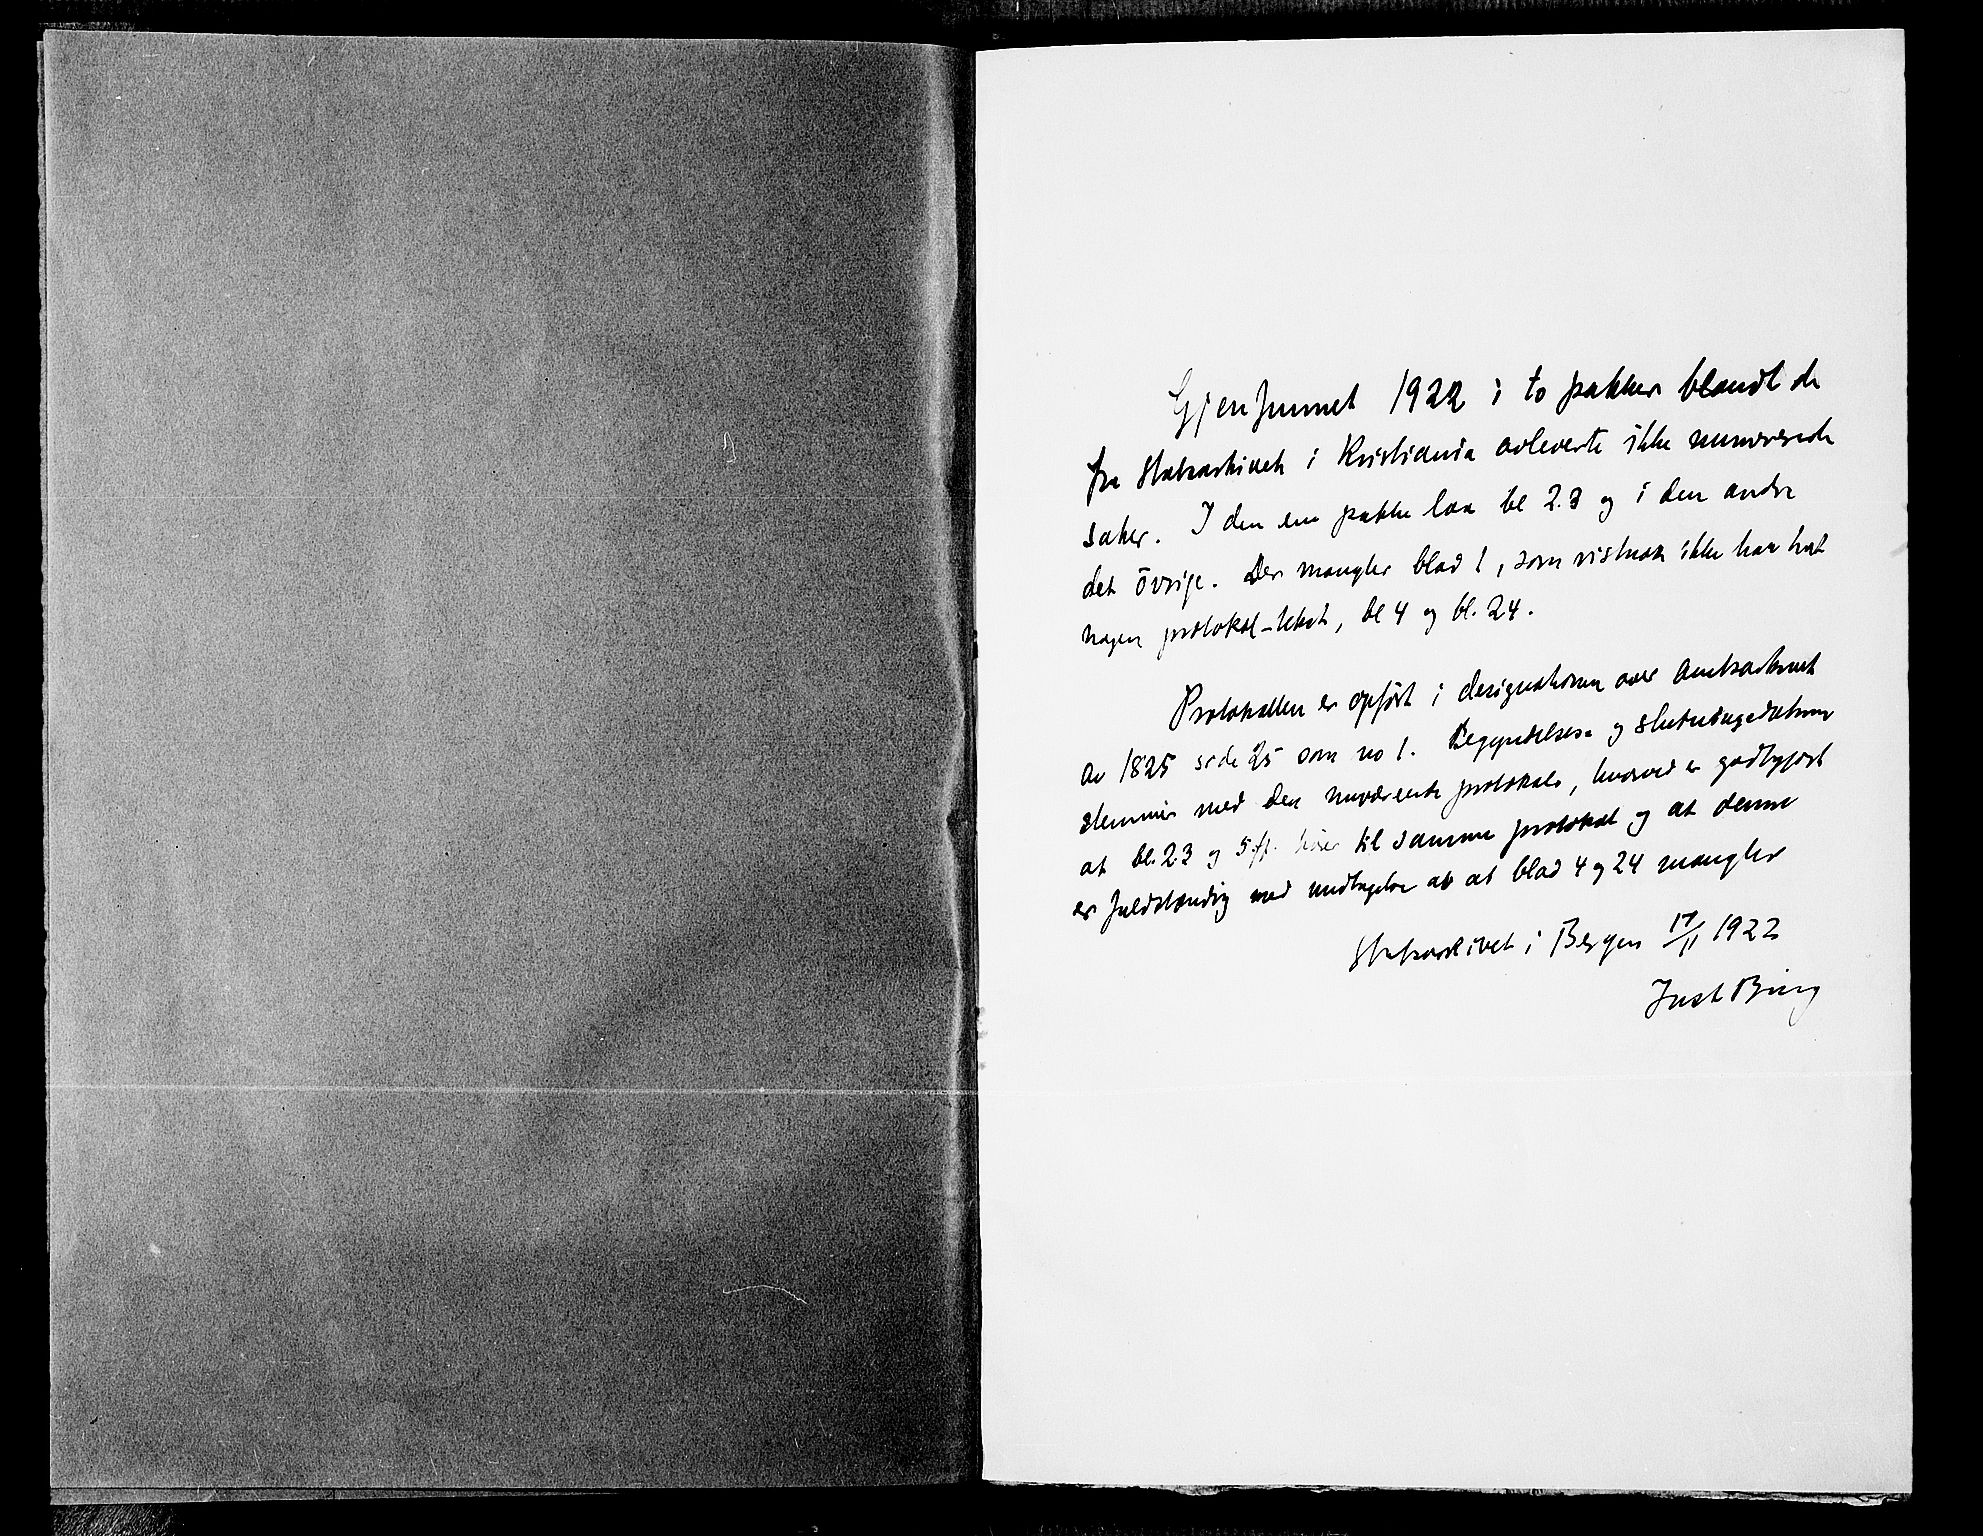 Gjenfunnet 1922 i to pakker blandt de
fra Statsarkivet i Kristiania avleverte ikke nummererte
saker. I den ene pakke laa bl 2.3 og i den andre
det övrige. Der mangler blad 1, som vistnok ikke har hat
nogen protokol-tekst, bl 4 og bl. 24.
Protokollen er opfört i designationen over Amtsarkivet
av 1825 side 25 som no 1. Begyndelses- og slutningsdatum
stemmer med den nuværende protokols, hvorved er godtgjort
at bl. 2.3 og 5 ff. hörer til samme protokol og at denne
er fuldstændig med undtagelse av at blad 4 og 24 mangler
Statsarkivet i Bergen 17/11 1922
Just Bing